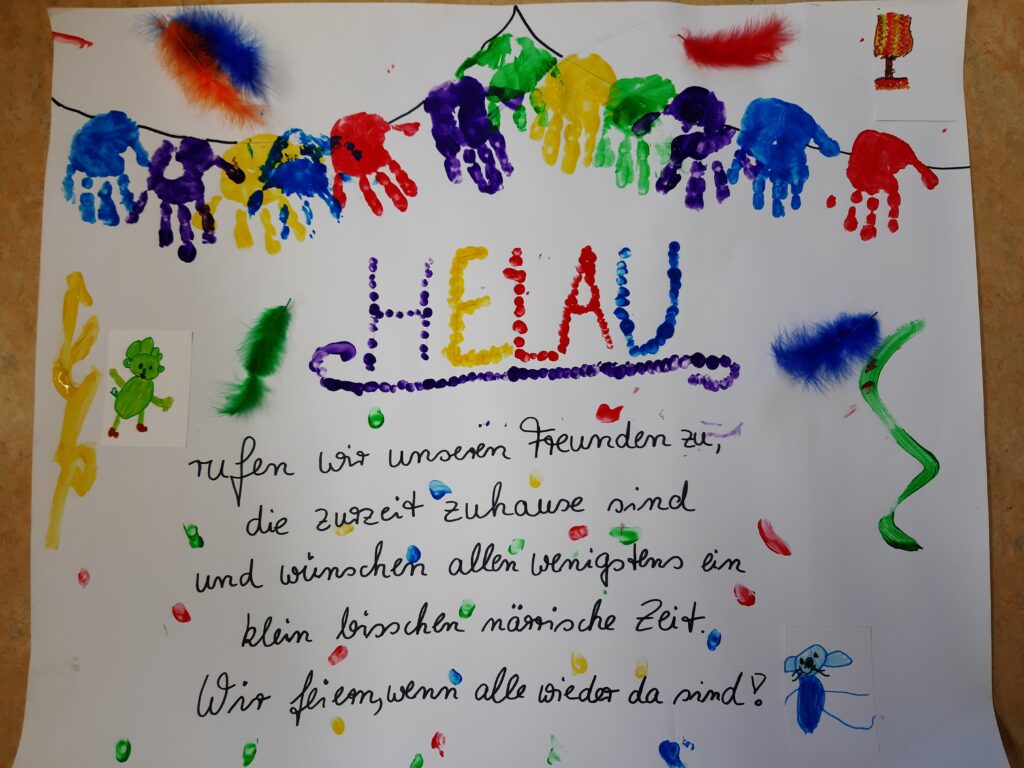 HELAU
rufen wir unseren Freunden zu,
die zurzeit zuhause sind
und wünschen allen wenigstens ein
klein bisschen närrische Zeit.
Wir feiern, wenn alle wieder da sind!